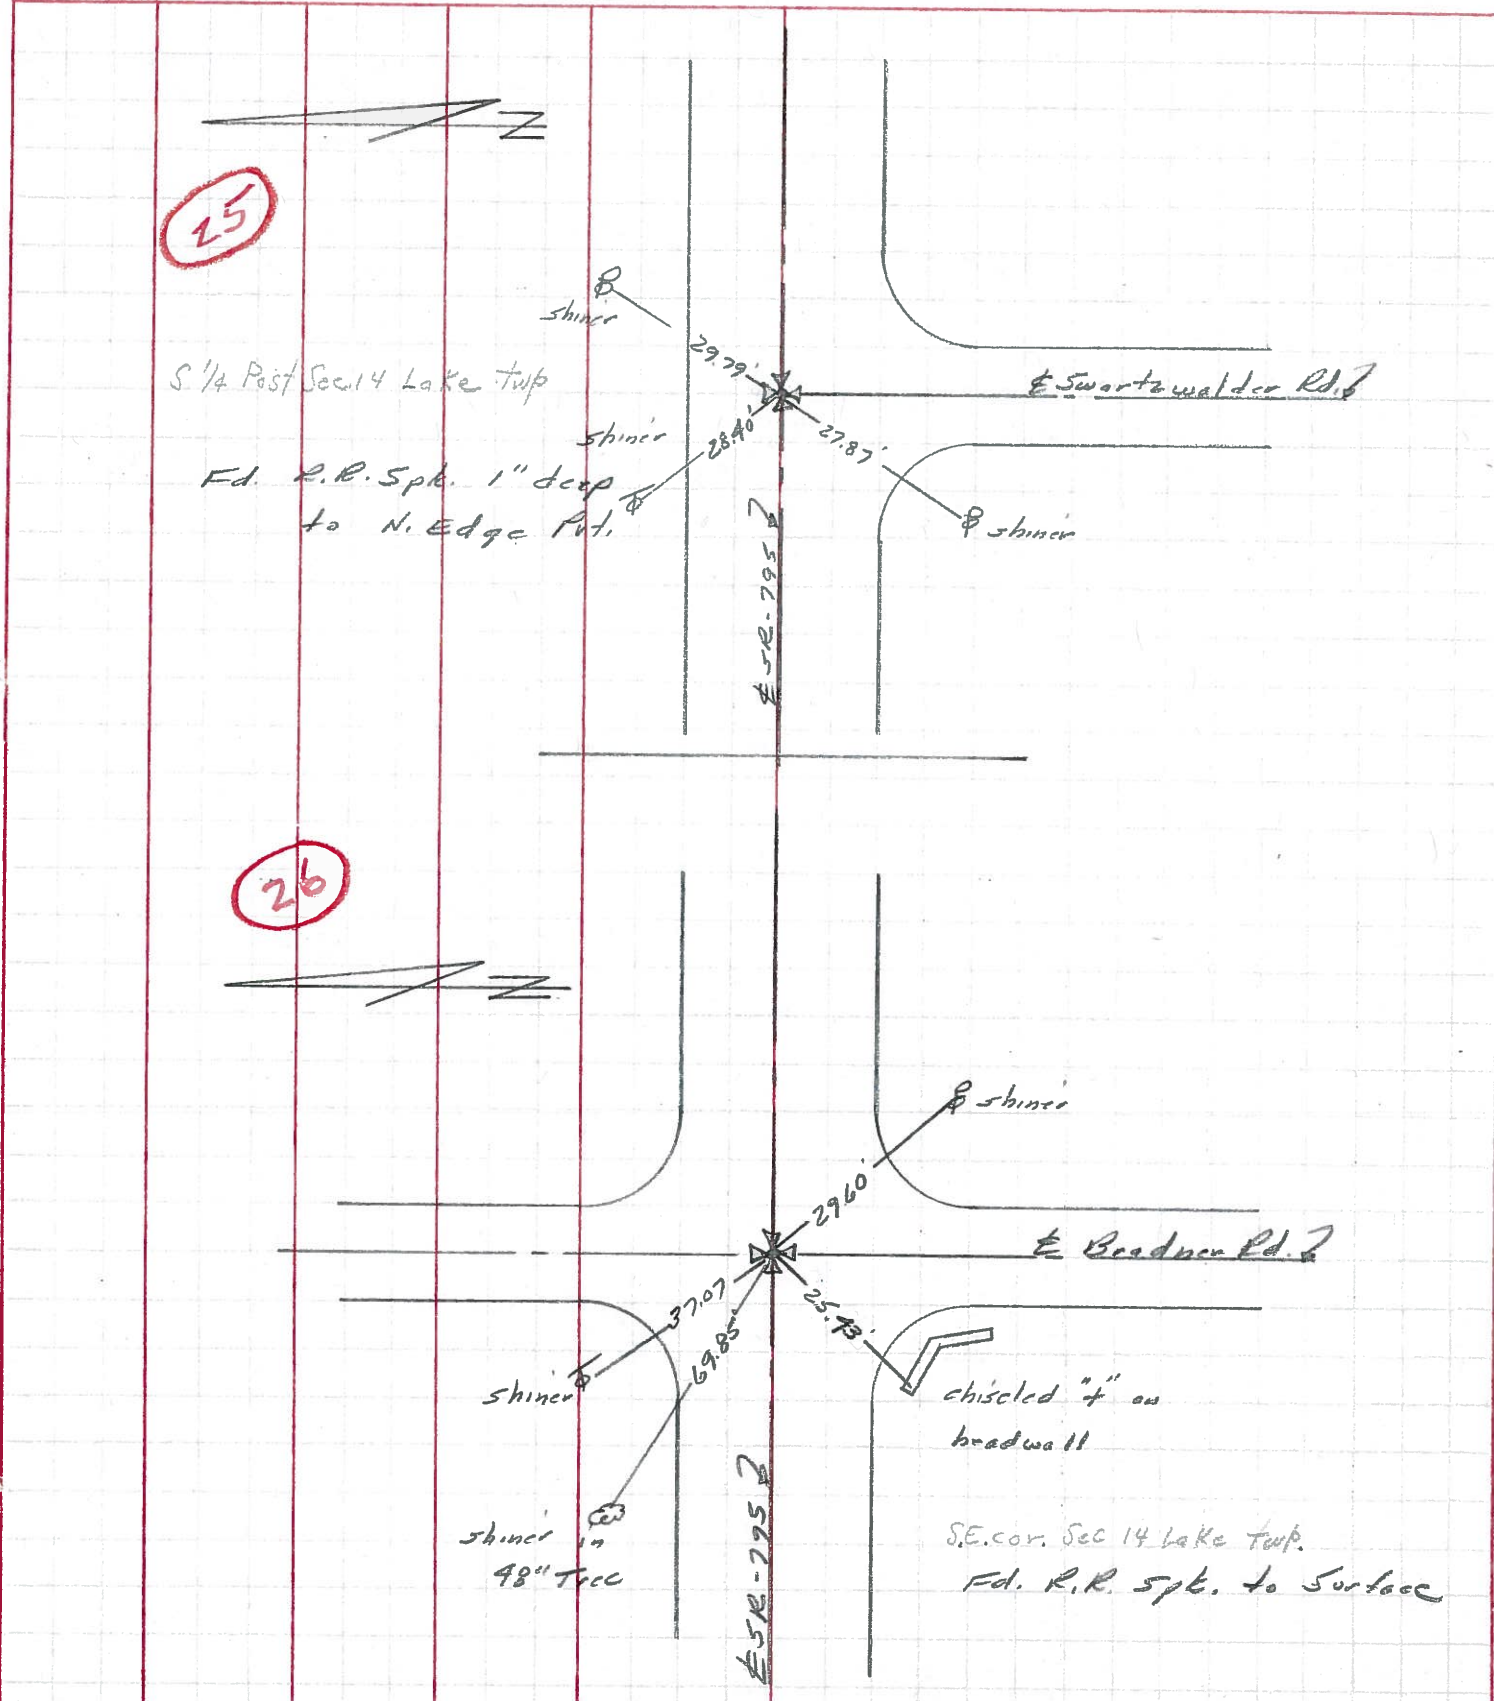 N
25
shiner
29.79'
S 1/4 Post Sec 14 Lake Twp
℄ Swartzwalder Rd.
shiner
28.40'
27.87'
Fd. R.R. Spk. 1" deep
to N. Edge Pvt.
shiner
℄ SR-795
26
N
shiner
29.60'
℄ Bradner Rd.
37.07
69.85'
25.43'
shiner
chiseled "+" on
headwall
shiner in
48" Tree
℄ SR-795
S.E. cor. Sec 14 Lake Twp.
Fd. R.R. Spk. to Surface